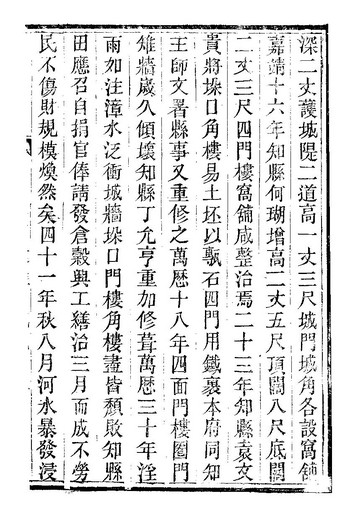 深二丈護城隄二道高一丈三尺城門城角各設窩舖
嘉靖十六年知縣何瑚增高二丈五尺頂闊八尺底闊
二丈三尺四門樓窩舖咸整治焉二十三年知縣袁文
貴將垛口角樓易土坯以甎石四門用鐵裹本府同知
王師文署縣事又重修之萬曆十八年四面門樓圈門
雉牆歲久傾壞知縣丁允亨重加修葺萬曆三十年淫
雨如注漳水泛衝城牆垛口門樓角樓盡皆頹敗知縣
田應召自捐官俸請發倉穀興工繕治三月而成不勞
民不傷財規模煥然矣四十一年秋八月河水暴發浸